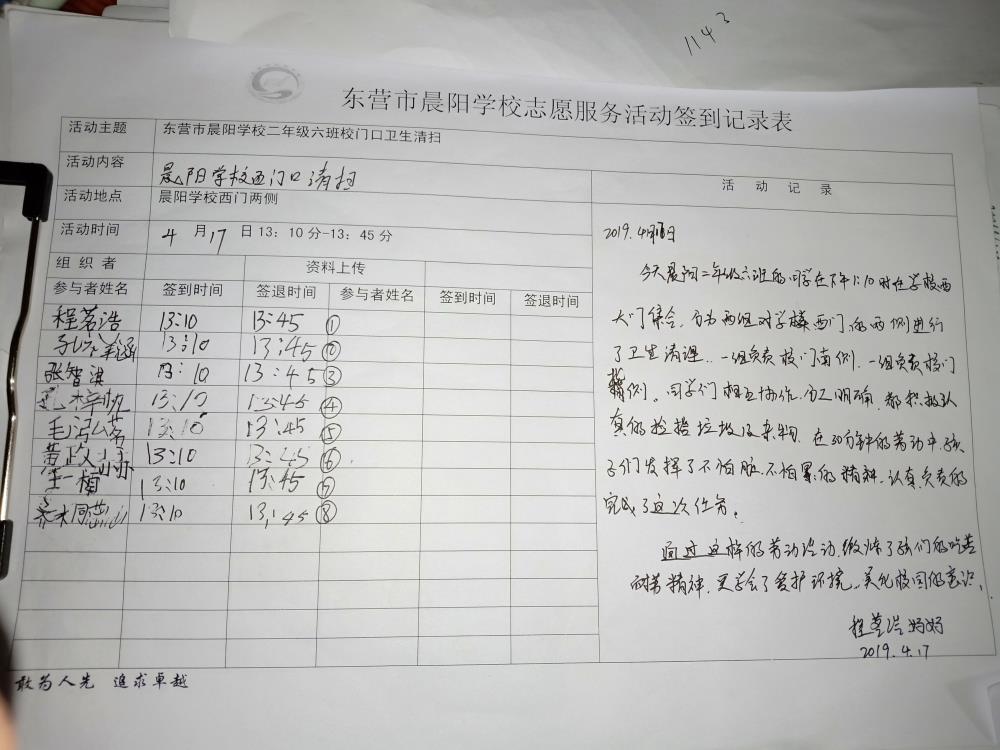 1143
东营市晨阳学校志愿服务活动签到记录表
活动主题 东营市晨阳学校二年级六班校门口卫生清扫
活动内容 晨阳学校西门口清扫
活动地点 晨阳学校西门两侧
活动时间 4 月 17 日 13：10 分-13：45 分
组织者 资料上传
参与者姓名 签到时间 签退时间 参与者姓名 签到时间 签退时间
程茗浩 13:10 13:45 ①
涵 13:10 13:45 ②
张智淇 13:10 13:45 ③
梓帆 13:10 13:45 ④
毛 茗 13:10 13:45 ⑤
黄政 13:10 13:45 ⑥
王一楠 13:10 13:45 ⑦
13:10 13:45 ⑧
活动记录
2019.4月 日
今天晨阳二年级六班的同学在下午1:10时在学校西
大门集合，分为两组对学校西门的两侧进行
了卫生清理。一组负责校门南侧，一组负责校门
侧。同学们相互协作，分工明确，都积极认
真的捡拾垃圾及杂物，在30分钟的劳动中，孩
子们发挥了不怕脏，不怕累的精神，认真负责的
完成了这次任务。
通过这样的劳动活动，锻炼了孩们的吃苦
耐劳精神，更学会了爱护环境，美化校园的意识。
程茗浩妈妈
2019.4.17
敢为人先 追求卓越